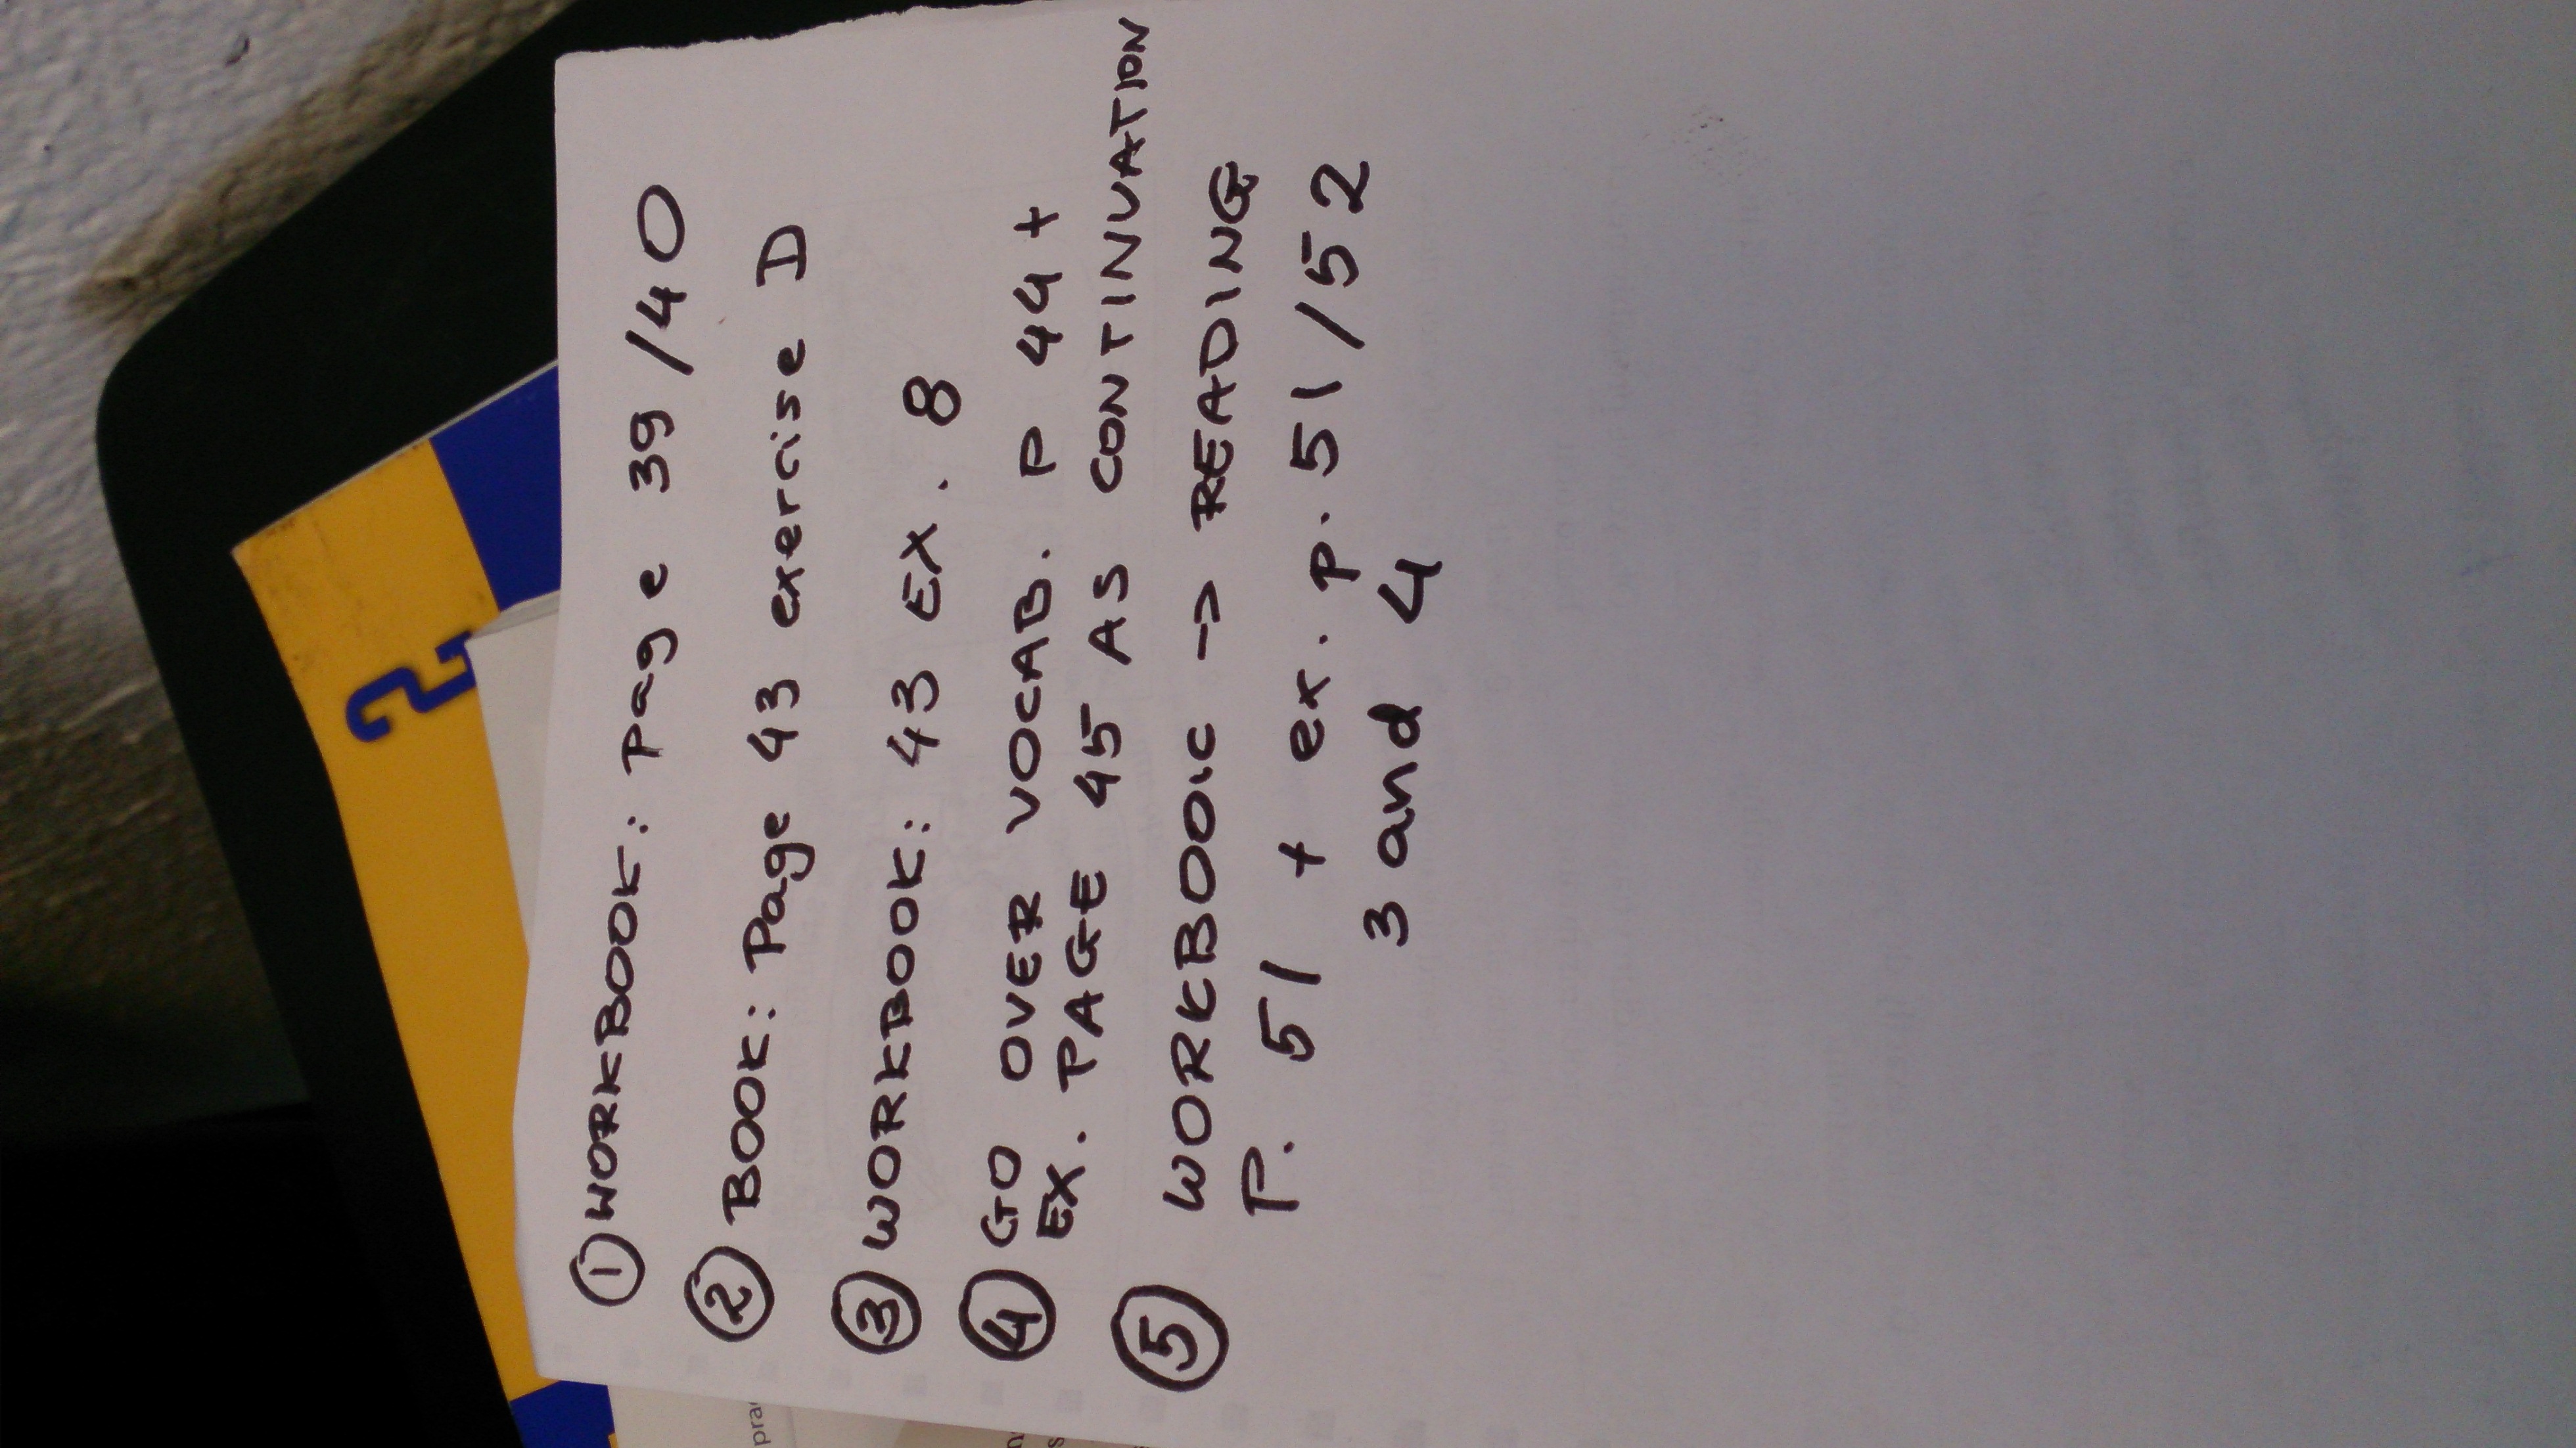 2
① WORKBOOK: page 39/40
② BOOK: Page 43 exercise D
③ WORKBOOK: 43 EX. 8
④ GO OVER VOCAB. P 44 +
EX. PAGE 45 AS CONTINUATION
⑤ WORKBOOK -> READING
P. 51 + ex. p. 51/52
3 and 4